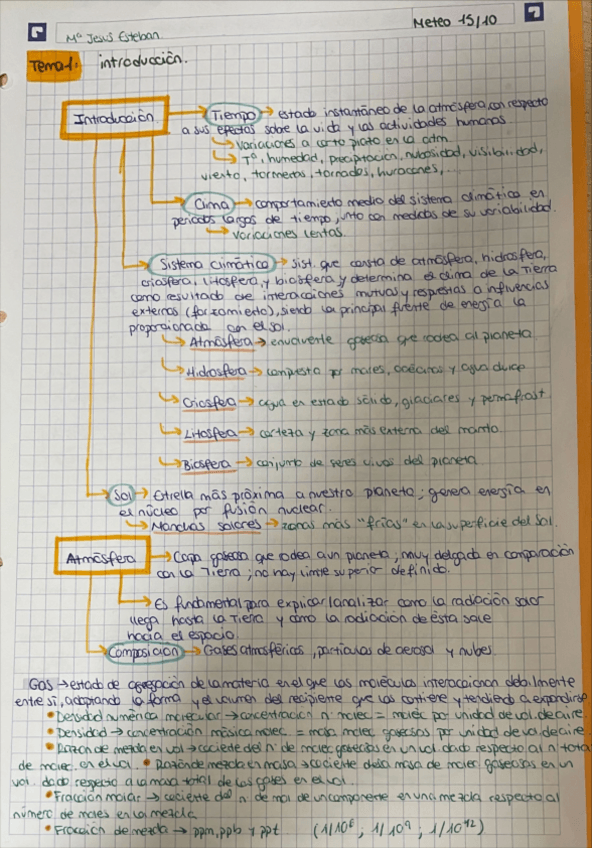 Mª Jesús Esteban
Meteo 15/10
Tema 1: introducción.
Introducción
Tiempo → estado instantáneo de la atmósfera, con respecto
a sus efectos sobre la vida y las actividades humanas
↳ variaciones a corto plazo en la atm
↳ Tª, humedad, precipitación, nubosidad, visibilidad,
viento, tormentas, tornados, huracanes,...
Clima → comportamiento medio del sistema climático en
periodos largos de tiempo, junto con medidas de su variabilidad.
↳ variaciones lentas.
Sistema climático → sist. que consta de atmósfera, hidrosfera,
criosfera, litosfera, y biosfera y determina el clima de la Tierra
como resultado de interacciones mutuas y respuestas a influencias
externas (forzamiento), siendo la principal fuente de energía la
proporcionada con el sol.
↳ Atmósfera → envolvente gaseosa que rodea al planeta
↳ Hidrosfera → compuesta por mares, océanos y agua dulce
↳ Criosfera → agua en estado sólido, glaciares y permafrost
↳ Litosfera → corteza y zona más externa del manto.
↳ Biosfera → conjunto de seres vivos del planeta
Sol → Estrella más próxima a nuestro planeta; genera energía en
el núcleo por fusión nuclear.
↳ Manchas solares → zonas más "frías" en la superficie del sol.
Atmósfera
→ Capa gaseosa que rodea a un planeta; muy delgada en comparación
con la Tierra; no hay límite superior definido.
→ Es fundamental para explicar/analizar como la radiación solar
llega hasta la Tierra y cómo la radiación de ésta sale
hacia el espacio
Composición → Gases atmosféricos, partículas de aerosol y nubes.
Gas → estado de agregación de la materia en el que las moléculas interaccionan débilmente
entre sí, adoptando la forma y el volumen del recipiente que las contiene y tendiendo a expandirse
• Densidad numérica molecular → concentración nº molec = molec por unidad de vol. de aire
• Densidad → concentración másica molec = masa molec gaseosas por unidad de vol. de aire.
• Razón de mezcla en vol → cociente del nº de molec gaseosas en un vol. dado respecto al nº total
de molec. en el vol. • Razón de mezcla en masa → cociente de la masa de molec gaseosas en un
vol. dado respecto a la masa total de los gases en el vol.
• Fracción molar → cociente del nº de mol de un componente en una mezcla respecto al
número de moles en la mezcla
• Fracción de mezcla → ppm, ppb y ppt (1/10⁶; 1/10⁹; 1/10¹²)